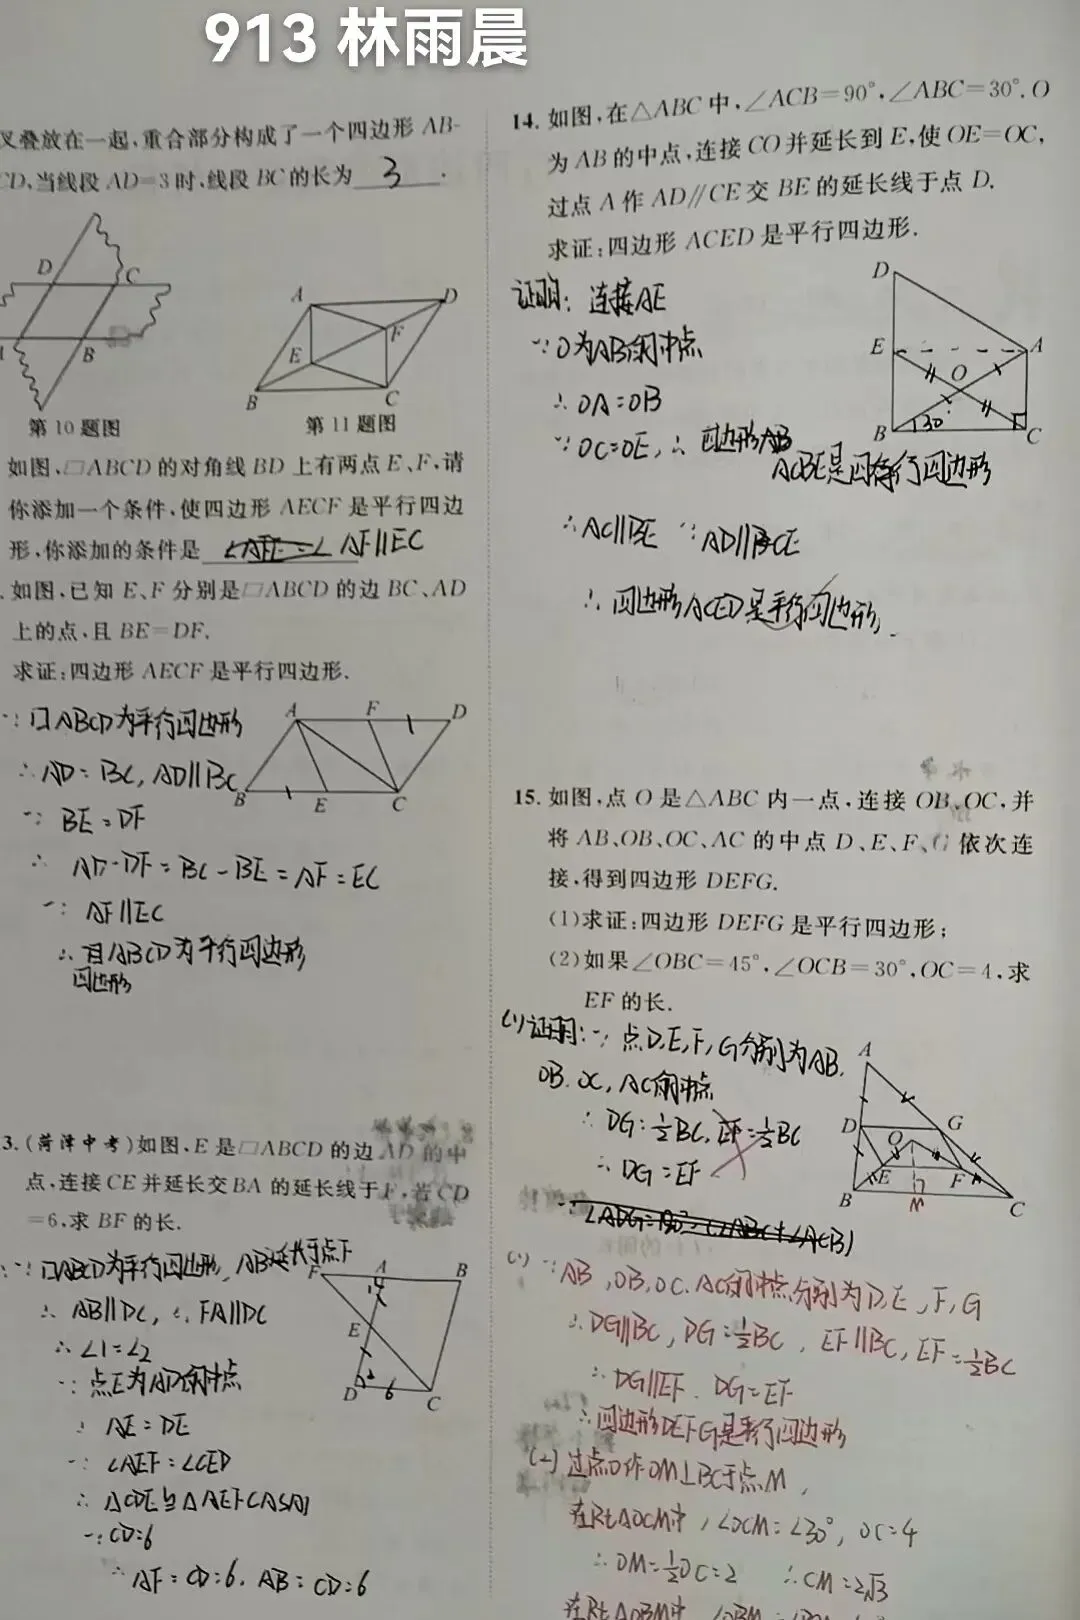 913 林雨晨
叉叠放在一起,重合部分构成了一个四边形 AB-
CD,当线段 AD=3时,线段 BC的长为 3 .
D
C
B
第10题图
A
D
F
E
B
C
第11题图
如图,□ABCD的对角线BD上有两点E、F,请
你添加一个条件,使四边形 AECF 是平行四边
形,你添加的条件是 AF∥EC
.如图,已知 E、F 分别是□ABCD 的边 BC、AD
上的点,且 BE=DF.
求证:四边形 AECF 是平行四边形.
∵□ABCD为平行四边形
∴AD=BC, AD∥BC
∵BE=DF
∴AD-DF=BC-BE=AF=EC
∵AF∥EC
∴ ABCD为平行四边形
四边形
A
F
D
B
E
C
3.(菏泽中考)如图,E 是□ABCD 的边 AD 的中
点,连接 CE 并延长交 BA 的延长线于 F,若 CD
=6,求 BF 的长.
∵□ABCD为平行四边形,AB延长于点F
∴AB∥DC, ∴FA∥DC
∴∠1=∠2
∵点E为AD的中点
∴AE=DE
∵∠AEF=∠CED
∴△CDE≌△AEF(ASA)
∵CD=6
∴AF=CD=6. AB=CD=6
F
A
B
1
E
D
2
6
C
14. 如图,在△ABC 中,∠ACB=90°,∠ABC=30°.O
为 AB 的中点,连接 CO 并延长到 E,使 OE=OC,
过点 A 作 AD∥CE 交 BE 的延长线于点 D.
求证:四边形 ACED 是平行四边形.
证明:连接AE
∵O为AB的中点
∴OA=OB
∵OC=OE,∴四边形
ACBE是平行四边形
∴AC∥BE ∵AD∥CE
∴四边形ACED是平行四边形.
D
E
A
O
B
30°
C
15. 如图,点 O 是△ABC 内一点,连接 OB、OC,并
将 AB、OB、OC、AC 的中点 D、E、F、G 依次连
接,得到四边形 DEFG.
(1)求证:四边形 DEFG 是平行四边形;
(2)如果∠OBC=45°,∠OCB=30°,OC=4,求
EF 的长.
(1)证明:∵点D,E,F,G分别为AB.
OB.OC,AC的中点
∴DG=½BC, EF=½BC
∴DG=EF
∠ADG=180°-(∠ABC+∠ACB)
A
D
G
O
E
F
B
M
C
(1) ∵AB,OB,OC.AC的中点分别为D,E,F,G
∴DG∥BC, DG=½BC, EF∥BC, EF=½BC
∴DG∥EF. DG=EF
∴四边形DEFG是平行四边形
(2)过点O作OM⊥BC于点M,
在Rt△OCM中,∠OCM=∠30°, OC=4
∴OM=½OC=2 ∴CM=2√3
在Rt△OBM中